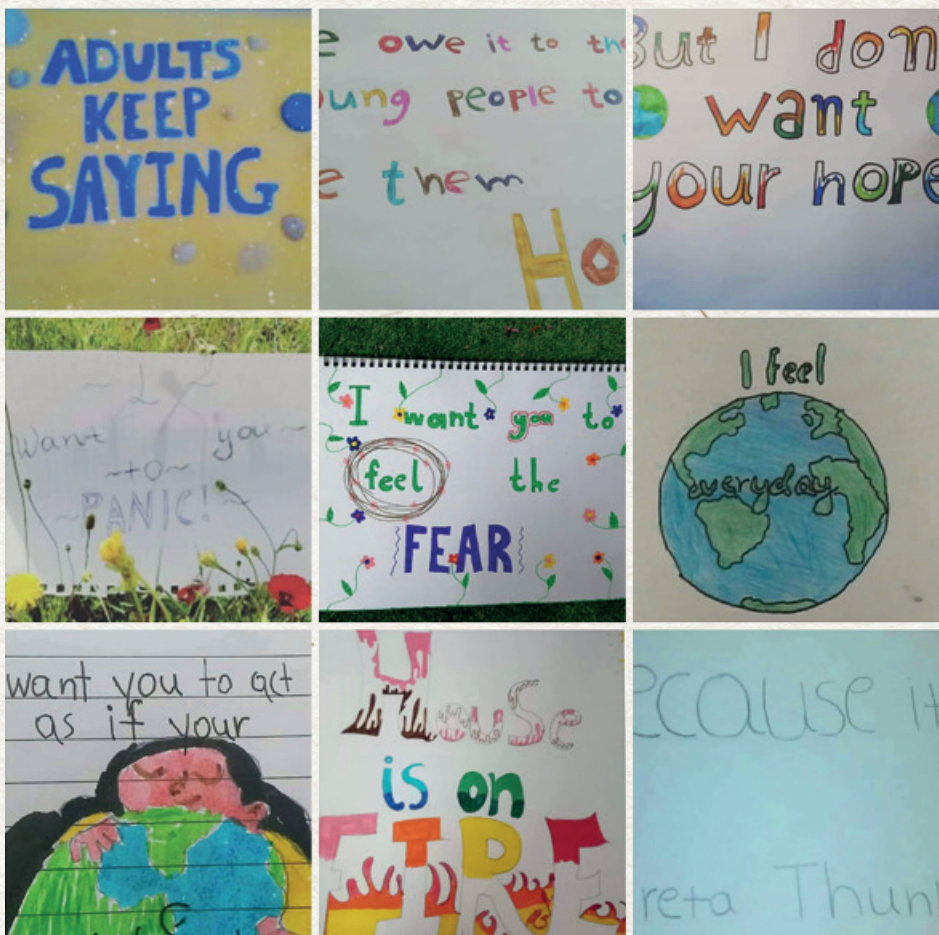 ADULTS
KEEP
SAYING
e owe it to the
ung people to
e them
Ho
But I don
want
your hope
I
want you
to
PANIC!
I want you to
feel the
FEAR
I feel
everyday
want you to act
as if your
House
is on
FIRE
ecause it
reta Thun